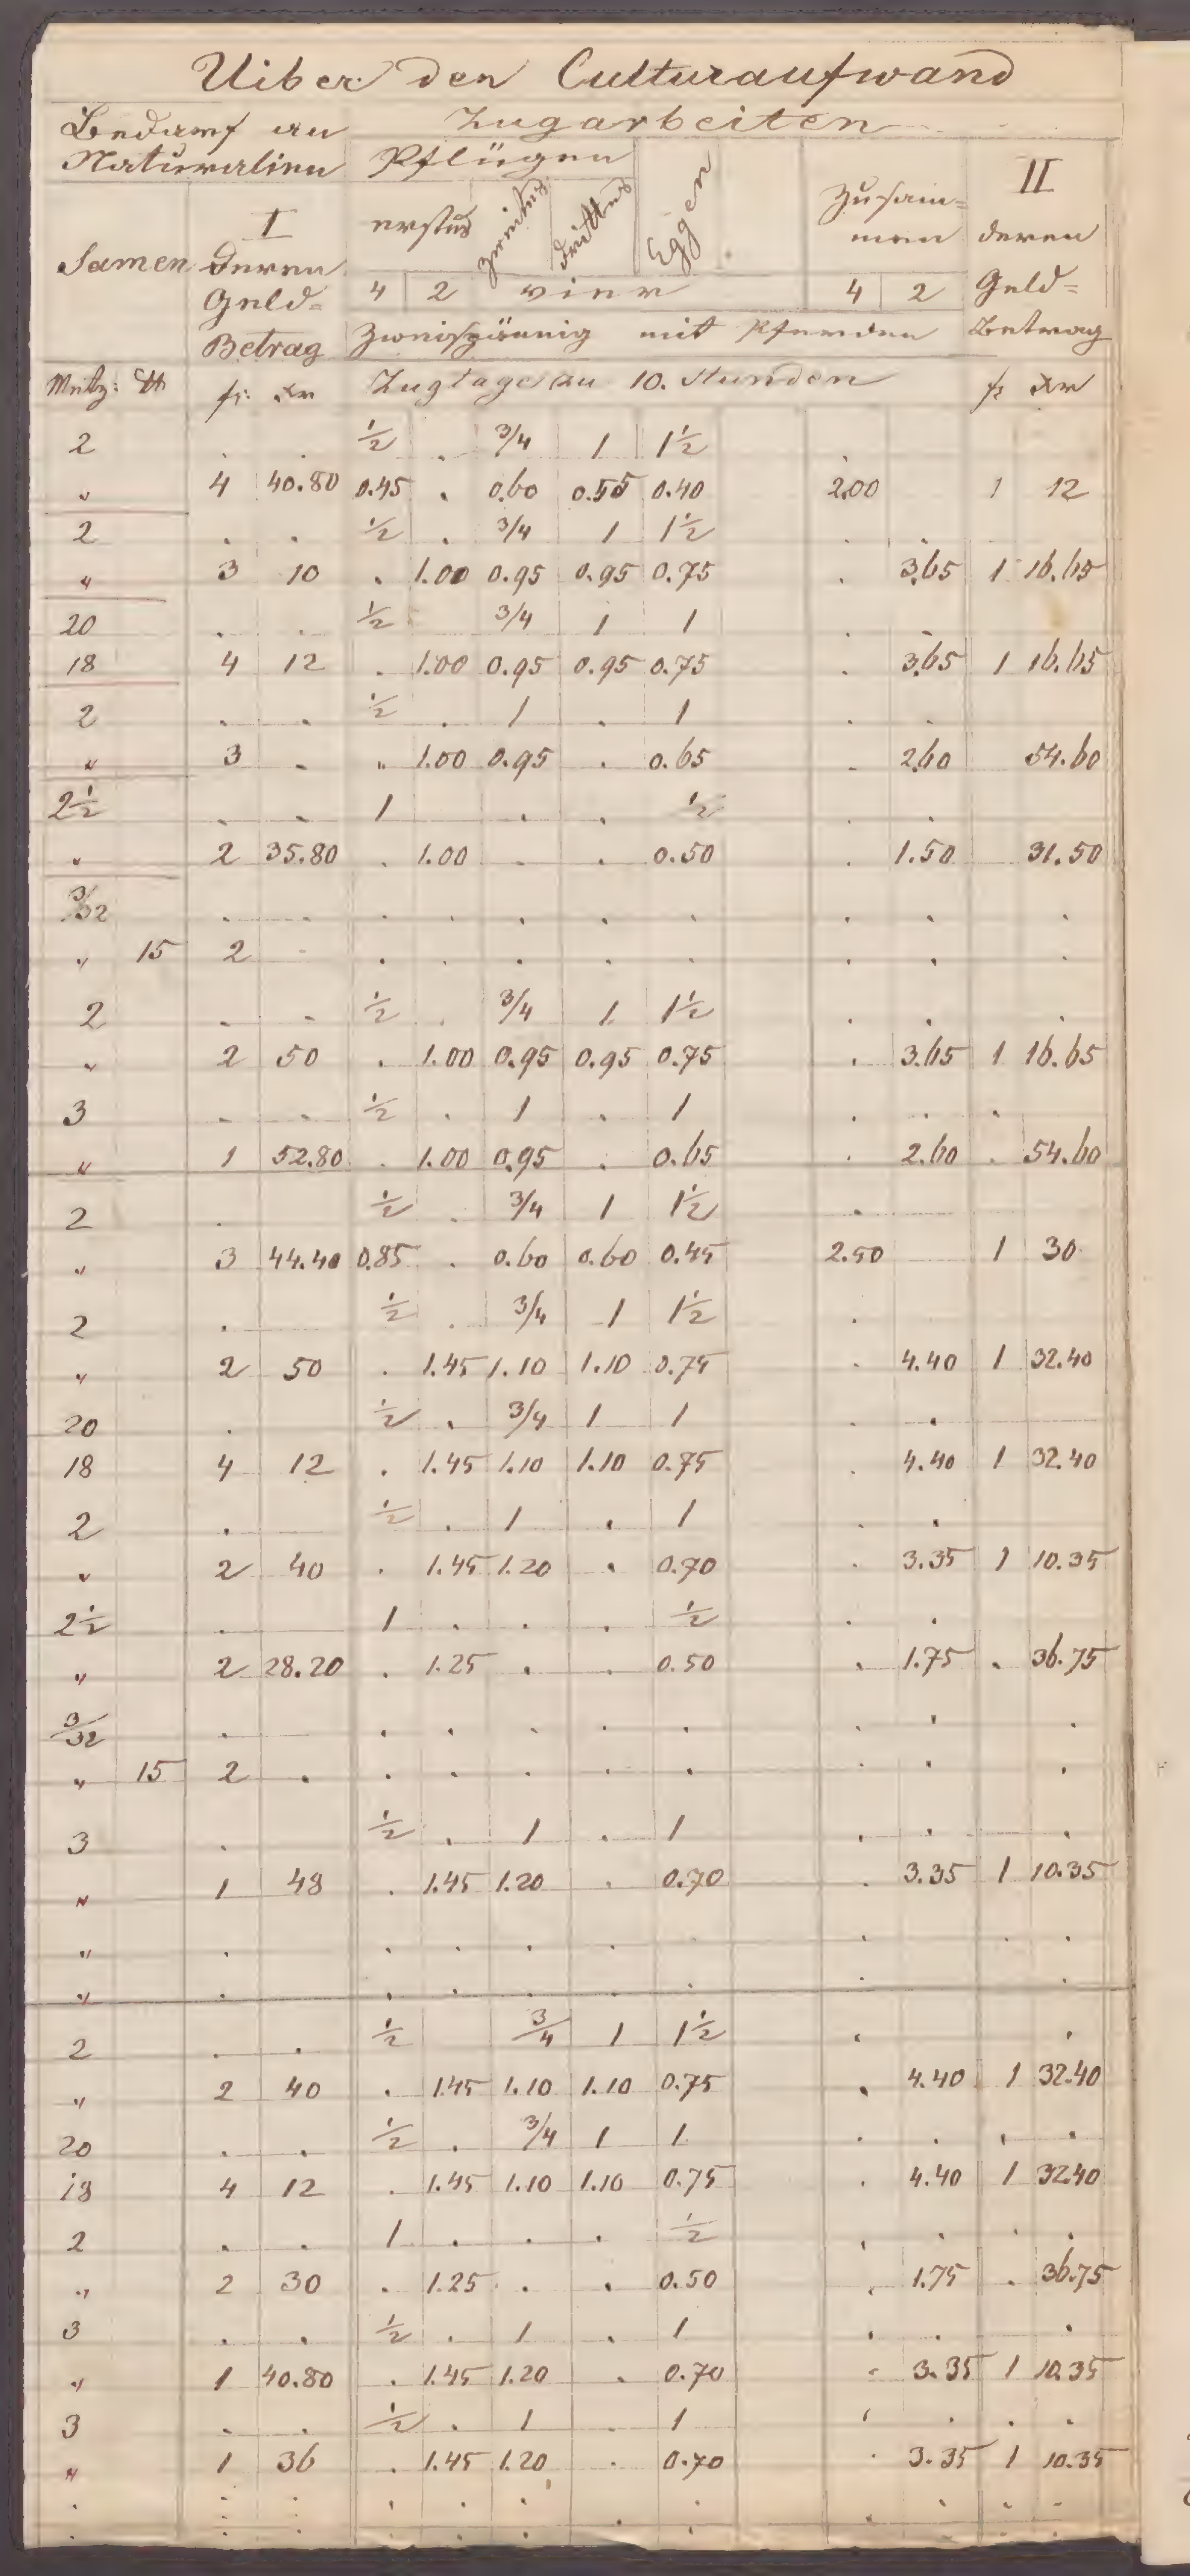 Uiber den Culturaufwand
Bedarf an Naturalien Zugarbeiten
Pflügen Eggen Zusammen II
Samen I deren Geld=Betrag erstes zweites drittes deren Geld=Betrag
4 2 vier 4 2
Zweispännig mit Pferden
Metz: ℔ fr: xr Zugtage zu 10. Stunden fr xr
2 . . ½ . ¾ 1 1½ .
" 4 40.80 0.45 . 0.60 0.55 0.40 2.00 1 12
2 . . ½ . ¾ 1 1½ . .
" 3 10 . 1.00 0.95 0.95 0.75 . 3.65 1 16.65
20 . . ½ ¾ 1 1 . .
18 4 12 . 1.00 0.95 0.95 0.75 . 3.65 1 16.65
2 . . ½ . 1 . 1 . .
" 3 . " 1.00 0.95 . 0.65 . 2.60 54.60
2½ . . 1 . . ½ . .
" 2 35.80 . 1.00 . . 0.50 . 1.50 31.50
3/32 . . . . . . . . . .
" 15 2 . . . . . . . . .
2 . . ½ . ¾ 1 1½ . . .
" 2 50 . 1.00 0.95 0.95 0.75 . 3.65 1 16.65
3 . . ½ . 1 . 1 . . .
" 1 52.80 . 1.00 0.95 . 0.65 . 2.60 . 54.60
2 . ½ . ¾ 1 1½ .
" 3 44.40 0.85 . 0.60 0.60 0.45 2.50 1 30
2 . ½ . ¾ 1 1½ .
" 2 50 . 1.45 1.10 1.10 0.75 . 4.40 1 32.40
20 . ½ . ¾ 1 1 . .
18 4 12 . 1.45 1.10 1.10 0.75 . 4.40 1 32.40
2 . ½ . 1 . 1 . .
" 2 40 . 1.45 1.20 . 0.70 . 3.35 1 10.35
2½ . 1 . . . ½ . .
" 2 28.20 . 1.25 . . 0.50 . 1.75 . 36.75
3/32 . . . . . . . . .
" 15 2 . . . . . . . . .
3 . ½ . 1 . 1 . . .
" 1 48 . 1.45 1.20 . 0.70 . 3.35 1 10.35
" . . . . . . . . .
" . . . . . . . .
2 . . ½ ¾ 1 1½ . .
" 2 40 . 1.45 1.10 1.10 0.75 . 4.40 1 32.40
20 . . ½ . ¾ 1 1 . . . .
18 4 12 . 1.45 1.10 1.10 0.75 . 4.40 1 32.40
2 . . 1 . . . ½ . . . .
" 2 30 . 1.25 . . 0.50 . 1.75 . 36.75
3 . . ½ . 1 . 1 . . .
" 1 40.80 . 1.45 1.20 . 0.70 . 3.35 1 10.35
3 . . ½ . 1 . 1 . . . .
" 1 36 . 1.45 1.20 . 0.70 . 3.35 1 10.35